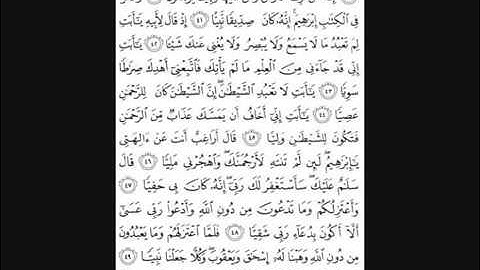 فِى ٱلْكِتَٰبِ إِبْرَٰهِيمَ ۚ إِنَّهُۥ كَانَ صِدِّيقًا نَّبِيًّا ٤١ إِذْ قَالَ لِأَبِيهِ يَٰٓأَبَتِ
لِمَ تَعْبُدُ مَا لَا يَسْمَعُ وَلَا يُبْصِرُ وَلَا يُغْنِى عَنكَ شَيْـًٔا ٤٢ يَٰٓأَبَتِ
إِنِّى قَدْ جَآءَنِى مِنَ ٱلْعِلْمِ مَا لَمْ يَأْتِكَ فَٱتَّبِعْنِىٓ أَهْدِكَ صِرَٰطًا
سَوِيًّا ٤٣ يَٰٓأَبَتِ لَا تَعْبُدِ ٱلشَّيْطَٰنَ ۖ إِنَّ ٱلشَّيْطَٰنَ كَانَ لِلرَّحْمَٰنِ
عَصِيًّا ٤٤ يَٰٓأَبَتِ إِنِّىٓ أَخَافُ أَن يَمَسَّكَ عَذَابٌ مِّنَ ٱلرَّحْمَٰنِ
فَتَكُونَ لِلشَّيْطَٰنِ وَلِيًّا ٤٥ قَالَ أَرَاغِبٌ أَنتَ عَنْ ءَالِهَتِى
يَٰٓإِبْرَٰهِيمُ ۖ لَئِن لَّمْ تَنتَهِ لَأَرْجُمَنَّكَ ۖ وَٱهْجُرْنِى مَلِيًّا ٤٦ قَالَ
سَلَٰمٌ عَلَيْكَ ۖ سَأَسْتَغْفِرُ لَكَ رَبِّىٓ ۖ إِنَّهُۥ كَانَ بِى حَفِيًّا ٤٧
وَأَعْتَزِلُكُمْ وَمَا تَدْعُونَ مِن دُونِ ٱللَّهِ وَأَدْعُوا۟ رَبِّى عَسَىٰٓ
أَلَّآ أَكُونَ بِدُعَآءِ رَبِّى شَقِيًّا ٤٨ فَلَمَّا ٱعْتَزَلَهُمْ وَمَا يَعْبُدُونَ
مِن دُونِ ٱللَّهِ وَهَبْنَا لَهُۥٓ إِسْحَٰقَ وَيَعْقُوبَ ۖ وَكُلًّا جَعَلْنَا نَبِيًّا ٤٩